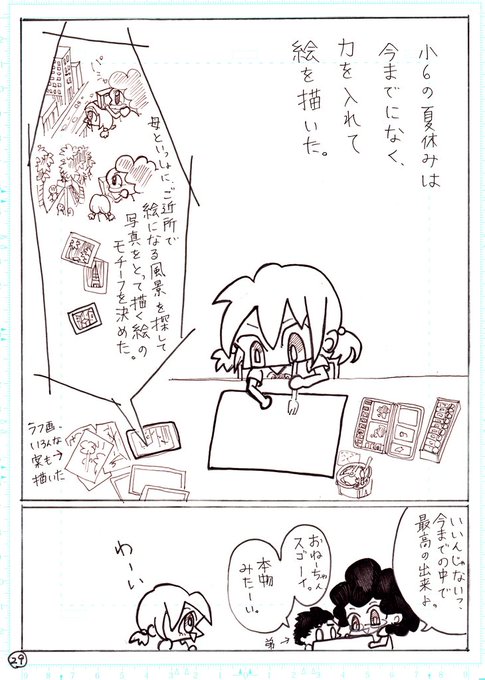 小6の夏休みは
今までになく、
力を入れて
絵を描いた。
母といっしょに、ご近所で
絵になる風景を探して
写真をとって描く絵の
モチーフを決めた。
ラフ画、
いろんな
案も→
描いた
いいんじゃない?
今までの中で
最高の出来よ。
おねーちゃん
スゴーイ。
本物
みたーい。
弟→
わーい
29